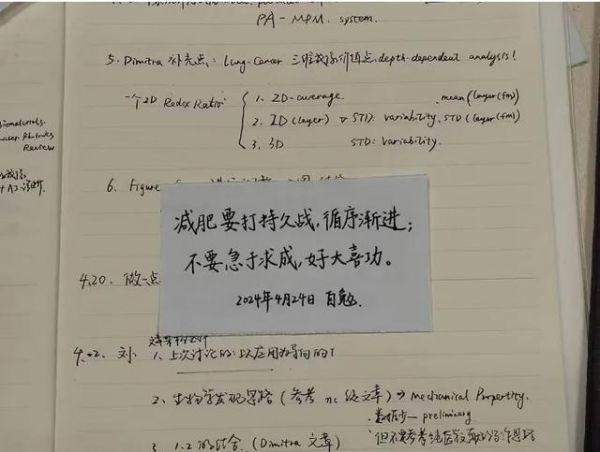 PA-MPM. system.
5. Dimitra 补充点: Lung-Cancer 三维数据价值点, depth-dependent analysis!
一个2D Redox Ratio:
1. 2D-average. mean(layer(fm)
2. 2D(layer) STD: variability. STD(layer(fm)
3. 3D STD: variability.
Biomaterials.
Laser Photonics
Review
6. Figure
减肥要打持久战,循序渐进;
不要急于求成,好大喜功。
2024年4月24日 自勉.
4.20. 做一点
4.22. 刘
1. 上次讨论的:以应用为导向的T
2. 生物学发现思路(参考 nc 级文章) → Mechanical Propertity.
数据少— preliminary
3. 1.2 的结合. (Dimitra 文章)